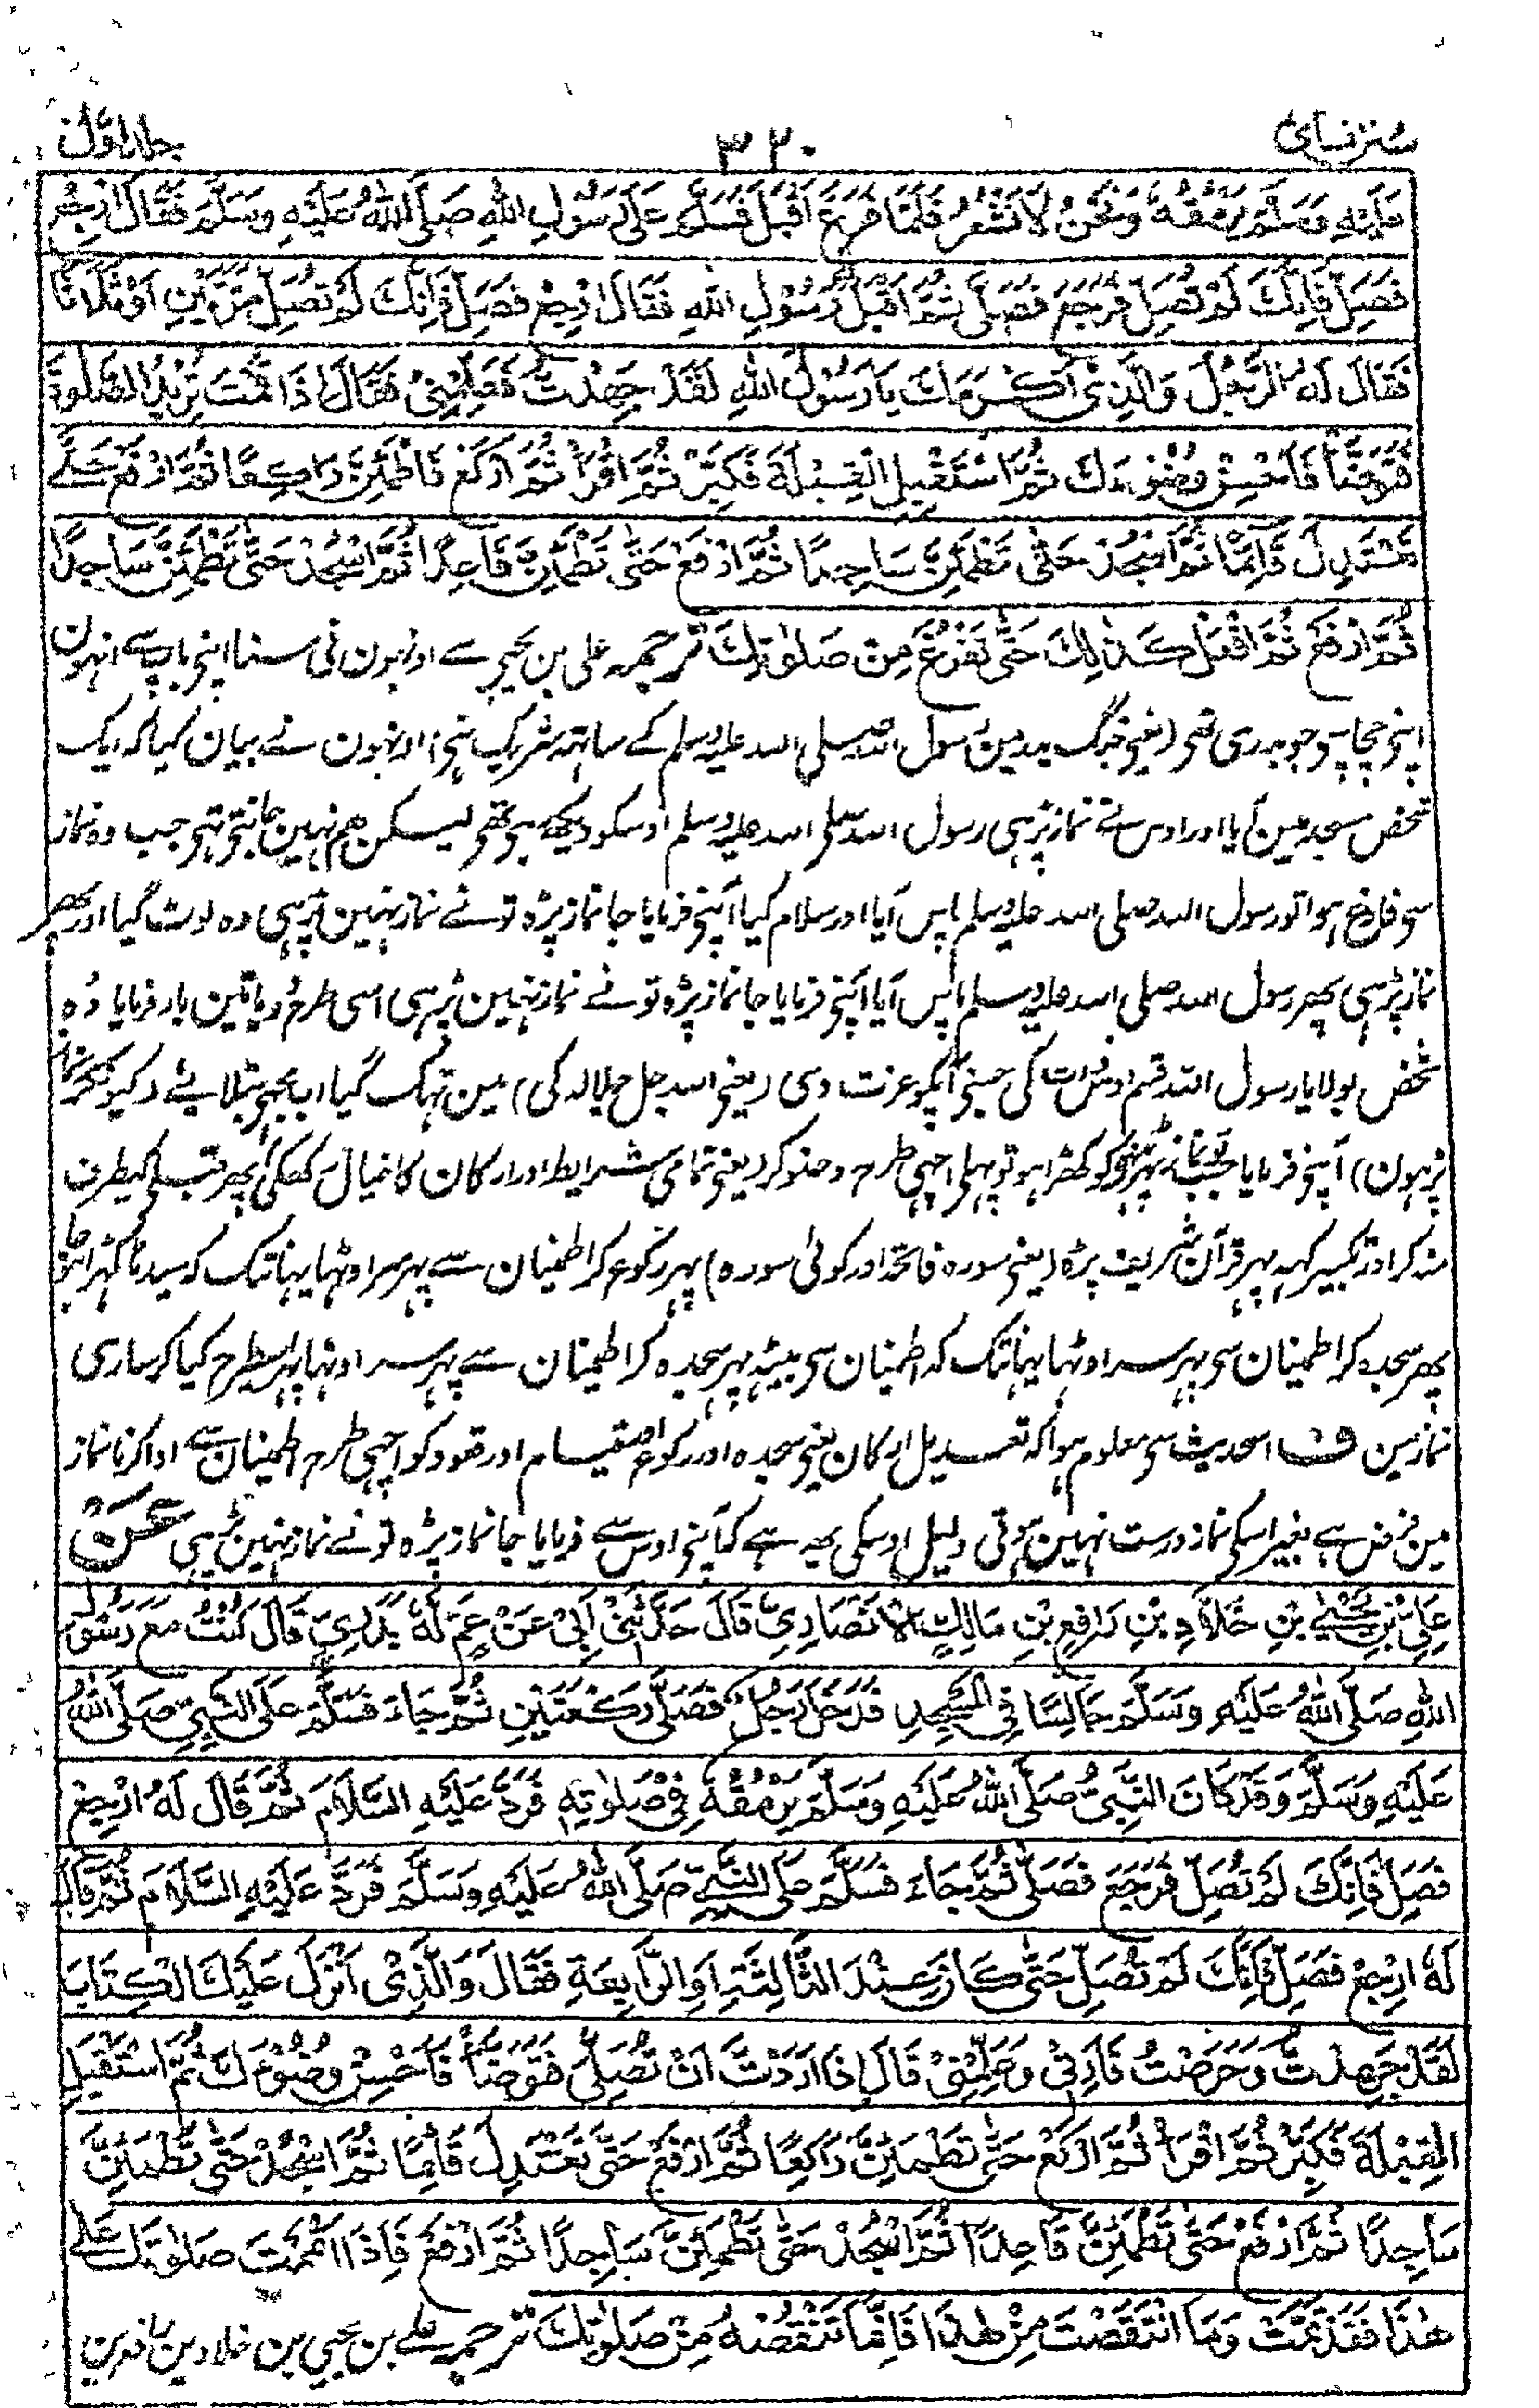 سنن نسائی ۳۲۰ جلد اول
عَلَيْهِ وَسَلَّمَ يَرْمُقُهٗ وَنَحْنُ لَا نَشْعُرُ فَلَمَّا فَرَغَ اَقْبَلَ فَسَلَّمَ عَلٰى رَسُوْلِ اللّٰهِ صَلَّى اللّٰهُ عَلَيْهِ وَسَلَّمَ فَقَالَ ارْجِعْ
فَصَلِّ فَاِنَّكَ لَمْ تُصَلِّ فَرَجَعَ فَصَلّٰى ثُمَّ اَقْبَلَ رَسُوْلِ اللّٰهِ فَقَالَ ارْجِعْ فَصَلِّ فَاِنَّكَ لَمْ تُصَلِّ مَرَّتَيْنِ اَوْ ثَلَاثًا
فَقَالَ لَهُ الرَّجُلُ وَالَّذِيْ اَكْرَمَكَ يَا رَسُوْلَ اللّٰهِ لَقَدْ جَهِدْتُ فَعَلِّمْنِيْ فَقَالَ اِذَا قُمْتَ تُرِيْدُ الصَّلٰوةَ
فَتَوَضَّأْ فَاَحْسِنْ وُضُوْءَكَ ثُمَّ اسْتَقْبِلِ الْقِبْلَةَ فَكَبِّرْ ثُمَّ اقْرَأْ ثُمَّ ارْكَعْ فَاطْمَئِنَّ رَاكِعًا ثُمَّ ارْفَعْ حَتّٰى
تَعْتَدِلَ قَائِمًا ثُمَّ اسْجُدْ حَتّٰى تَطْمَئِنَّ سَاجِدًا ثُمَّ ارْفَعْ حَتّٰى تَطْمَئِنَّ قَاعِدًا ثُمَّ اسْجُدْ حَتّٰى تَطْمَئِنَّ سَاجِدًا
ثُمَّ ارْفَعْ ثُمَّ افْعَلْ كَذٰلِكَ حَتّٰى تَفْرُغَ مِنْ صَلٰوتِكَ ترجمہ علی بن یحیی سے اونہون نی سنا اپنی باپ سے انہون
اپنی چچا سی جو بدری تھی (یعنی جنگ بدر مین رسول اللہ صلی اللہ علیہ وسلم کے ساتہہ شریک تہی) اونہون نے بیان کیا کہ ایک
شخص مسجد مین آیا اور اوس نے نماز پڑہی رسول اللہ صلی اللہ علیہ وسلم اوسکو دیکھہ رہی تھی لیسکن ہم نہین جانتی تہی جب وہ نماز
سی فارغ ہوا تو رسول اللہ صلی اللہ علیہ وسلم پاس آیا اور سلام کیا آپنی فرمایا جا نماز پڑہ تو نے نماز نہین پڑہی وہ لوٹ گیا اور پھر
نماز پڑہی پھر رسول اللہ صلی اللہ علیہ وسلم پاس آیا آپنی فرمایا جا نماز پڑہ تو نے نماز نہین پڑہی اسی طرح دو یا تین بار فرمایا وہ
شخص بولا یا رسول اللہ قسم اوس ذات کی جسنی آپکو عزت دی (یعنی اللہ جل جلالہ کی) مین تہک گیا اب مجھی بتلائیے (کیونکر نماز
پڑہون) آپنی فرمایا جب تو نماز پڑہنی کو کھڑا ہو تو پہلی اچہی طرح وضو کر (یعنی تمامی شرایط اور ارکان کا خیال رکھکی) پھر قبلی کیطرف
منہ کر اور تکبیر کہہ پہر قرآن شریف پڑہ (یعنی سورہ فاتحہ اور کوئی سورہ) پہر رکوع کر اطمینان سے پہر سر اوٹہا یہانتک کہ سیدہا کہڑا ہو جا
پھر سجدہ کر اطمینان سی پہر سر اوٹہا یہانتک کہ اطمینان سی بیٹہہ پہر سجدہ کر اطمینان سے پہر سر اوٹہا پہر اسیطرح کیا کر ساری
نماز مین ف اسحدیث سی معلوم ہوا کہ تعدیل ارکان یعنی سجدہ اور رکوع اور قیام اور قعود کو اچہی طرح اطمینان سے ادا کرنا نماز
مین فرض ہے بغیر اسکی نماز درست نہین ہوتی دلیل اوسکی یہہ ہے کہ آپنی اوس سے فرمایا جا نماز پڑہ تو نے نماز نہین پڑہی عَنْ
عَلِيِّ بْنِ يَحْيٰى بْنِ خَلَّادِ بْنِ رَافِعِ بْنِ مَالِكٍ الْاَنْصَارِيِّ قَالَ حَدَّثَنِيْ اَبِيْ عَنْ عَمٍّ لَهٗ بَدْرِيٍّ قَالَ كُنْتُ مَعَ رَسُوْلِ
اللّٰهِ صَلَّى اللّٰهُ عَلَيْهِ وَسَلَّمَ جَالِسًا فِي الْمَسْجِدِ فَدَخَلَ رَجُلٌ فَصَلّٰى رَكْعَتَيْنِ ثُمَّ جَاءَ فَسَلَّمَ عَلَى النَّبِيِّ صَلَّى اللّٰهُ
عَلَيْهِ وَسَلَّمَ وَقَدْ كَانَ النَّبِيُّ صَلَّى اللّٰهُ عَلَيْهِ وَسَلَّمَ يَرْمُقُهٗ فِيْ صَلٰوتِهٖ فَرَدَّ عَلَيْهِ السَّلَامَ ثُمَّ قَالَ لَهُ ارْجِعْ
فَصَلِّ فَاِنَّكَ لَمْ تُصَلِّ فَرَجَعَ فَصَلّٰى ثُمَّ جَاءَ فَسَلَّمَ عَلَى النَّبِيِّ صَلَّى اللّٰهُ عَلَيْهِ وَسَلَّمَ فَرَدَّ عَلَيْهِ السَّلَامَ ثُمَّ قَالَ
لَهٗ ارْجِعْ فَصَلِّ فَاِنَّكَ لَمْ تُصَلِّ حَتّٰى كَانَ عِنْدَ الثَّالِثَةِ اَوِ الرَّابِعَةِ فَقَالَ وَالَّذِيْ اَنْزَلَ عَلَيْكَ الْكِتَابَ
لَقَدْ جَهِدْتُ وَحَرَصْتُ فَاَرِنِيْ وَعَلِّمْنِيْ قَالَ اِذَا اَرَدْتَ اَنْ تُصَلِّيَ فَتَوَضَّأْ فَاَحْسِنْ وُضُوْءَكَ ثُمَّ اسْتَقْبِلِ
الْقِبْلَةَ فَكَبِّرْ ثُمَّ اقْرَأْ ثُمَّ ارْكَعْ حَتّٰى تَطْمَئِنَّ رَاكِعًا ثُمَّ ارْفَعْ حَتّٰى تَعْتَدِلَ قَائِمًا ثُمَّ اسْجُدْ حَتّٰى تَطْمَئِنَّ
سَاجِدًا ثُمَّ ارْفَعْ حَتّٰى تَطْمَئِنَّ قَاعِدًا ثُمَّ اسْجُدْ حَتّٰى تَطْمَئِنَّ سَاجِدًا ثُمَّ ارْفَعْ فَاِذَا اَتْمَمْتَ صَلٰوتَكَ عَلٰى
هٰذَا فَقَدْ تَمَّتْ وَمَا انْتَقَصْتَ مِنْ هٰذَا فَاِنَّمَا تَنْقُصُهٗ مِنْ صَلٰوتِكَ ترجمہ علی بن یحیی بن خلاد بن رافع بن